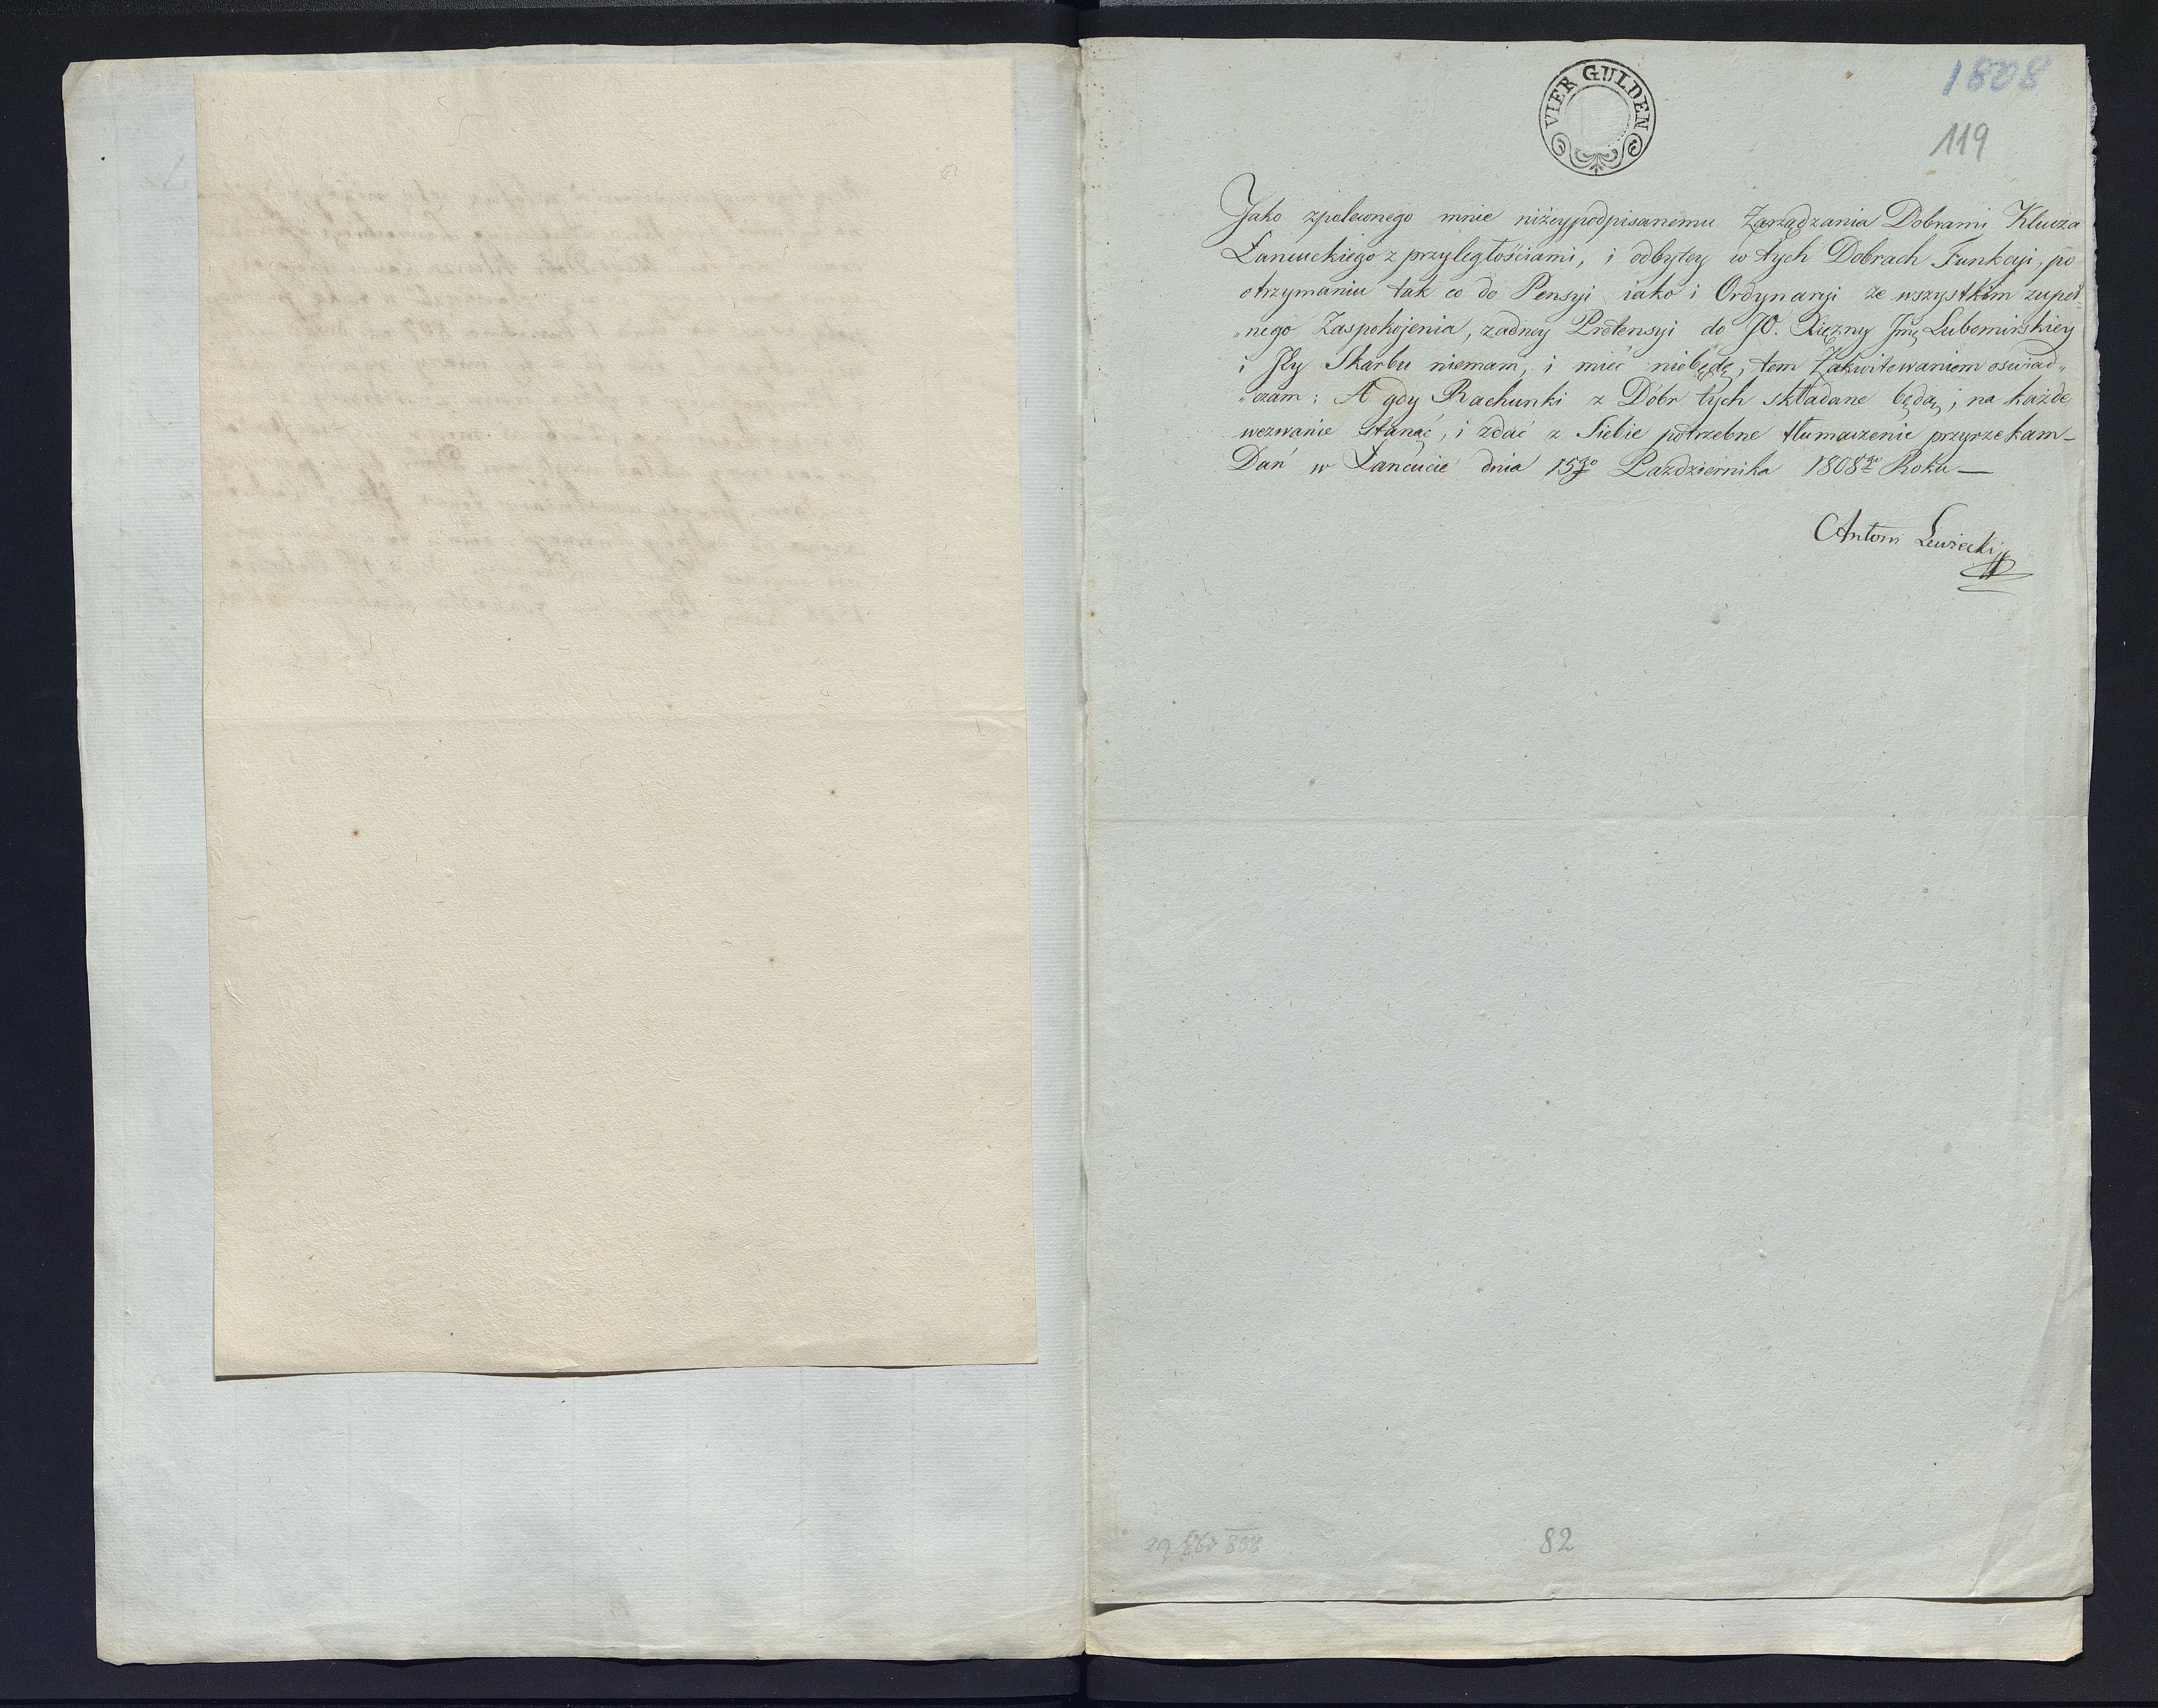 VIER GULDEN
1808
119
Jako zpoleconego mnie niżeypodpisanemu Zarządzania Dobrami Klucza
Łancuckiego z przyległościami, i odbytey w tych Dobrach Funkcyi, po
otrzymaniu tak co do Pensyi iako i Ordynaryi ze wszystkim zupeł„
„nego Zaspokojenia, zadney Pretensyi do JO. Xiężny Jmę Lubomirskiey
i Jey Skarbu niemam, i mieć niebędę, tem Zakwitowaniem oswiad„
„czam; A gdy Rachunki z Dóbr tych składane będą, na każde
wezwanie Stanąć, i zdać z Siebie potrzebne tłumaczenie przyrzekam—
Dań w Łańcucie dnia 15go Pazdziernika 1808go Roku—
Antoni Lewicki
82